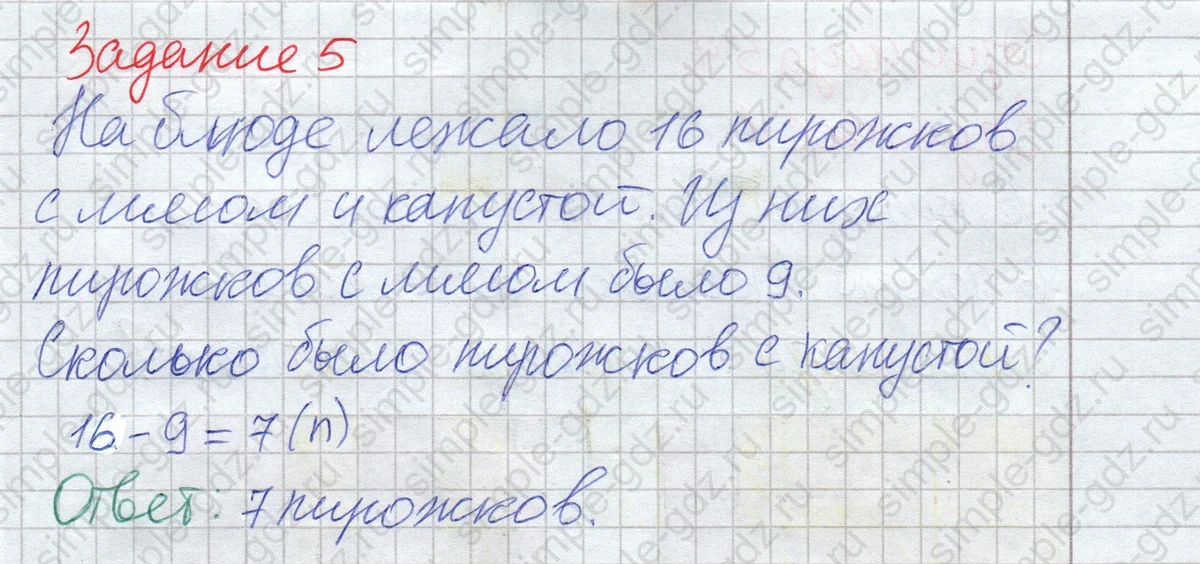 Задание 5
На блюде лежало 16 пирожков
с мясом и капустой. Из них
пирожков с мясом было 9.
Сколько было пирожков с капустой?
16 - 9 = 7 (п)
Ответ: 7 пирожков.
simple-gdz.ru